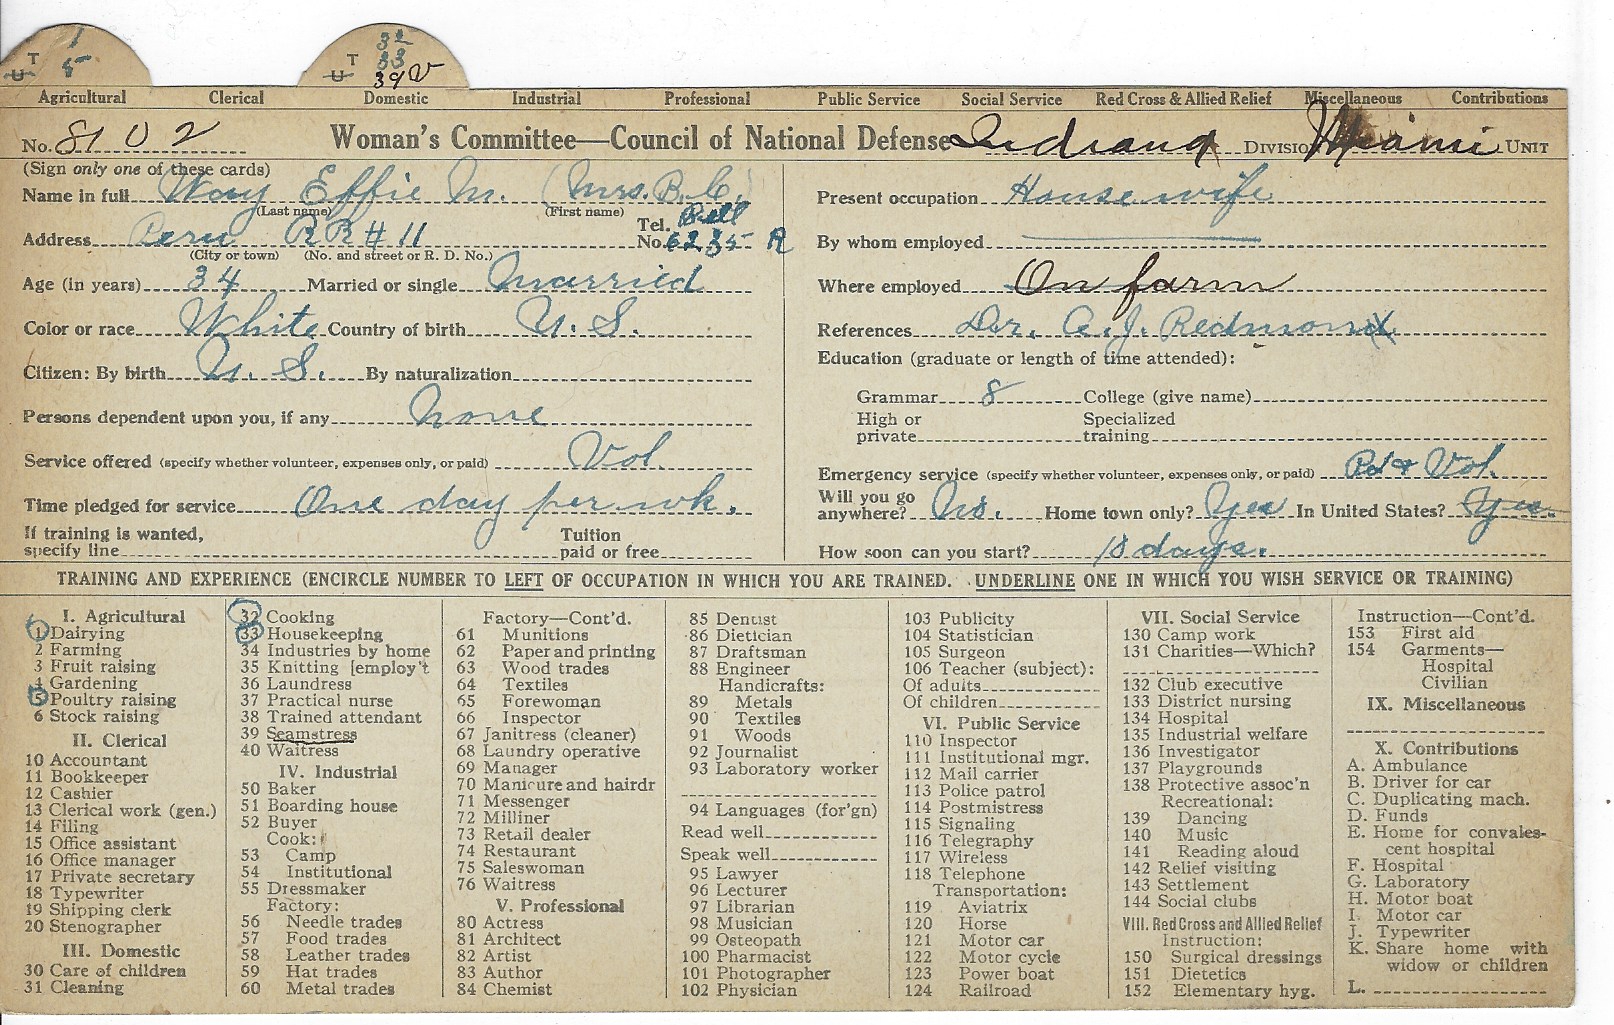 T 1
U 5
T 32
33
U 39 V
Agricultural Clerical Domestic Industrial Professional Public Service Social Service Red Cross & Allied Relief Miscellaneous Contributions
No. 8102 Woman's Committee—Council of National Defense Indiana DIVISION Miami UNIT
(Sign only one of these cards)
Name in full Way Effie M. (Mrs. B. C.)
(Last name) (First name)
Address Peru RR # 11 Tel. No. Bell 6235 R
(City or town) (No. and street or R. D. No.)
Age (in years) 34 Married or single Married
Color or race White Country of birth U. S.
Citizen: By birth U. S. By naturalization
Persons dependent upon you, if any none
Service offered (specify whether volunteer, expenses only, or paid) Vol.
Time pledged for service One day per wk.
If training is wanted, specify line Tuition paid or free
Present occupation Housewife
By whom employed
Where employed On farm
References Dr. A. J. Redmond
Education (graduate or length of time attended):
Grammar 8 College (give name)
High or private Specialized training
Emergency service (specify whether volunteer, expenses only, or paid) Pd & Vol.
Will you go anywhere? No. Home town only? Yes In United States? Yes.
How soon can you start? 10 days.
TRAINING AND EXPERIENCE (ENCIRCLE NUMBER TO LEFT OF OCCUPATION IN WHICH YOU ARE TRAINED. UNDERLINE ONE IN WHICH YOU WISH SERVICE OR TRAINING)
I. Agricultural
1 Dairying
2 Farming
3 Fruit raising
4 Gardening
5 Poultry raising
6 Stock raising
II. Clerical
10 Accountant
11 Bookkeeper
12 Cashier
13 Clerical work (gen.)
14 Filing
15 Office assistant
16 Office manager
17 Private secretary
18 Typewriter
19 Shipping clerk
20 Stenographer
III. Domestic
30 Care of children
31 Cleaning
32 Cooking
33 Housekeeping
34 Industries by home
35 Knitting [employ't
36 Laundress
37 Practical nurse
38 Trained attendant
39 Seamstress
40 Waitress
IV. Industrial
50 Baker
51 Boarding house
52 Buyer
Cook:
53 Camp
54 Institutional
55 Dressmaker
Factory:
56 Needle trades
57 Food trades
58 Leather trades
59 Hat trades
60 Metal trades
Factory—Cont'd.
61 Munitions
62 Paper and printing
63 Wood trades
64 Textiles
65 Forewoman
66 Inspector
67 Janitress (cleaner)
68 Laundry operative
69 Manager
70 Manicure and hairdr
71 Messenger
72 Milliner
73 Retail dealer
74 Restaurant
75 Saleswoman
76 Waitress
V. Professional
80 Actress
81 Architect
82 Artist
83 Author
84 Chemist
85 Dentist
86 Dietician
87 Draftsman
88 Engineer
Handicrafts:
89 Metals
90 Textiles
91 Woods
92 Journalist
93 Laboratory worker
94 Languages (for'gn)
Read well
Speak well
95 Lawyer
96 Lecturer
97 Librarian
98 Musician
99 Osteopath
100 Pharmacist
101 Photographer
102 Physician
103 Publicity
104 Statistician
105 Surgeon
106 Teacher (subject):
Of adults
Of children
VI. Public Service
110 Inspector
111 Institutional mgr.
112 Mail carrier
113 Police patrol
114 Postmistress
115 Signaling
116 Telegraphy
117 Wireless
118 Telephone
Transportation:
119 Aviatrix
120 Horse
121 Motor car
122 Motor cycle
123 Power boat
124 Railroad
VII. Social Service
130 Camp work
131 Charities—Which?
132 Club executive
133 District nursing
134 Hospital
135 Industrial welfare
136 Investigator
137 Playgrounds
138 Protective assoc'n
Recreational:
139 Dancing
140 Music
141 Reading aloud
142 Relief visiting
143 Settlement
144 Social clubs
VIII. Red Cross and Allied Relief
Instruction:
150 Surgical dressings
151 Dietetics
152 Elementary hyg.
Instruction—Cont'd.
153 First aid
154 Garments—
Hospital
Civilian
IX. Miscellaneous
X. Contributions
A. Ambulance
B. Driver for car
C. Duplicating mach.
D. Funds
E. Home for convales-
cent hospital
F. Hospital
G. Laboratory
H. Motor boat
I. Motor car
J. Typewriter
K. Share home with
widow or children
L.